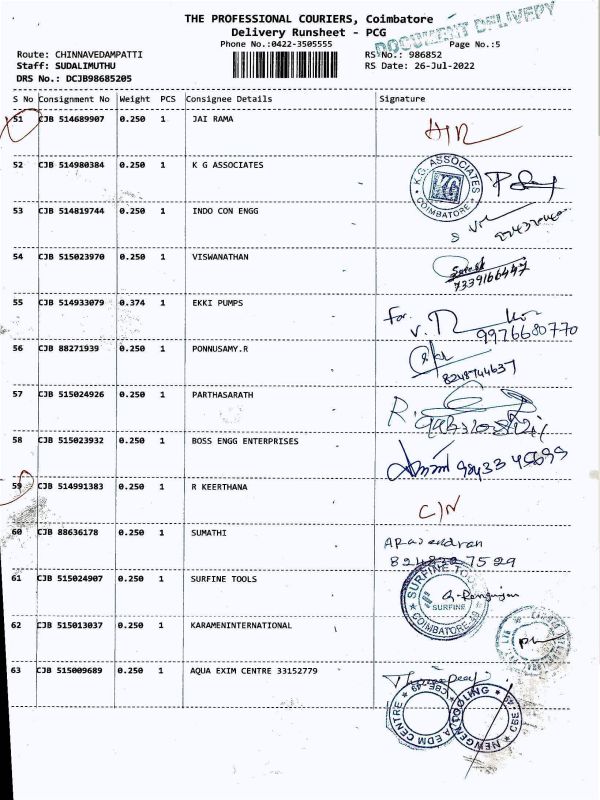 THE PROFESSIONAL COURIERS, Coimbatore
Delivery Runsheet - PCG
DOCUMENT DELIVERY
Phone No.:0422-3505555
Page No.:5
Route: CHINNAVEDAMPATTI
RS No.: 986852
Staff: SUDALIMUTHU
RS Date: 26-Jul-2022
DRS No.: DCJB98685205
S No Consignment No Weight PCS Consignee Details Signature
51 CJB 514689907 0.250 1 JAI RAMA
52 CJB 514980384 0.250 1 K G ASSOCIATES
K.G. ASSOCIATES COIMBATORE KG
53 CJB 514819744 0.250 1 INDO CON ENGG
54 CJB 515023970 0.250 1 VISWANATHAN
7339166447
55 CJB 514933079 0.374 1 EKKI PUMPS
For
9976680770
56 CJB 88271939 0.250 1 PONNUSAMY.R
8248744637
57 CJB 515024926 0.250 1 PARTHASARATH
58 CJB 515023932 0.250 1 BOSS ENGG ENTERPRISES
59 CJB 514991383 0.250 1 R KEERTHANA
C/N
60 CJB 88636178 0.250 1 SUMATHI
61 CJB 515024907 0.250 1 SURFINE TOOLS
SURFINE TOOLS SURFINE COIMBATORE-49
62 CJB 515013037 0.250 1 KARAMENINTERNATIONAL
63 CJB 515009689 0.250 1 AQUA EXIM CENTRE 33152779